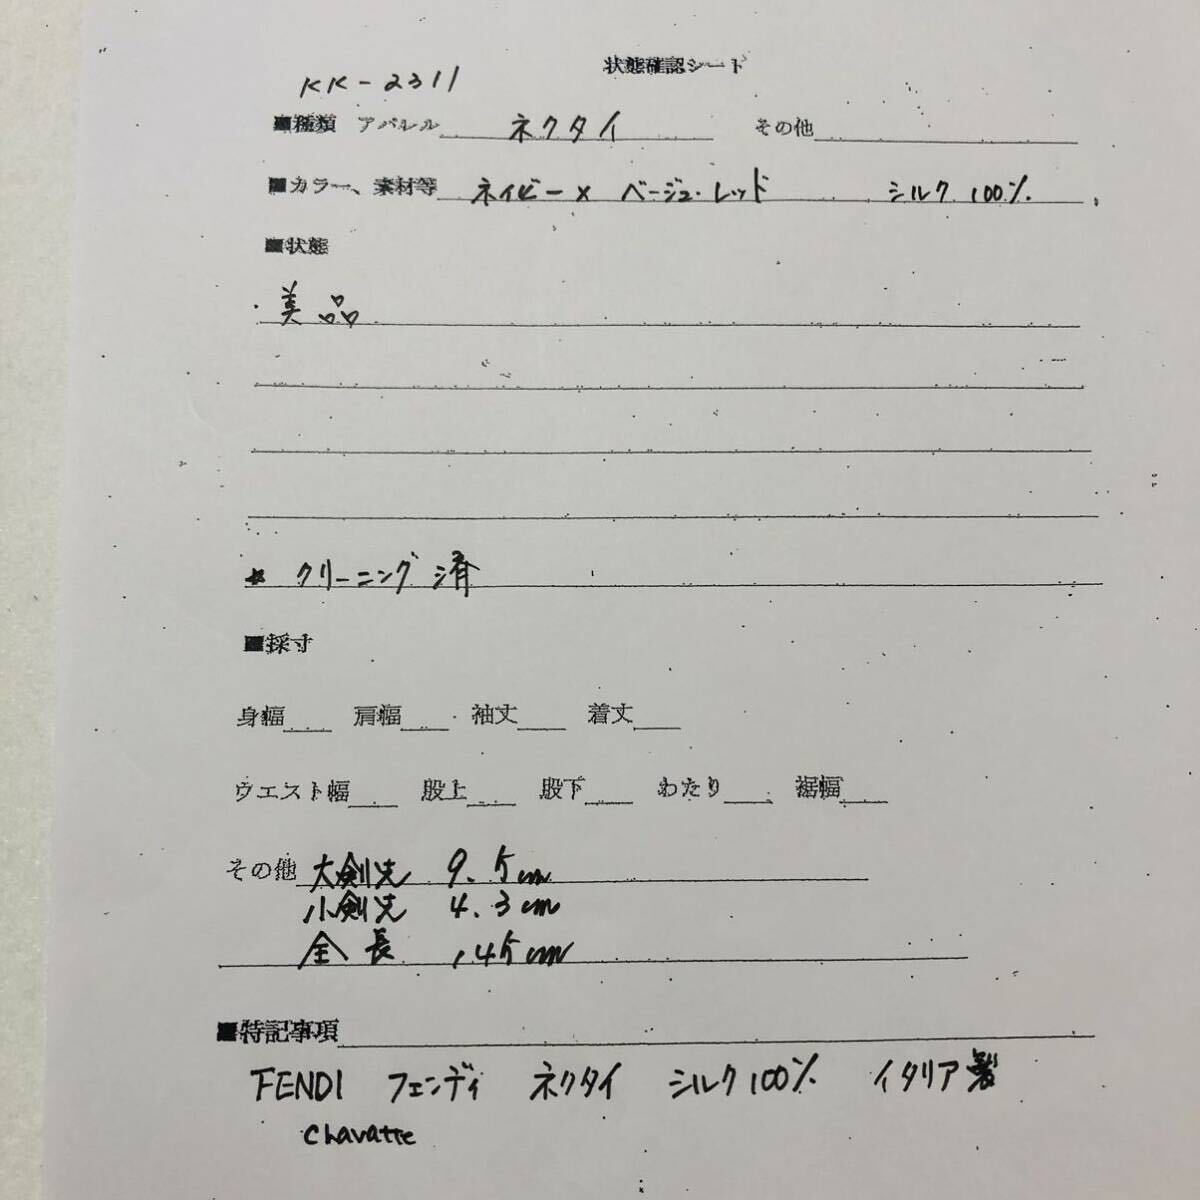 状態確認シート
KK-2311
■種類 アパレル ネクタイ その他
■カラー、素材等 ネイビー×ベージュ・レッド シルク100%
■状態
・美品
* クリーニング済
■採寸
身幅 肩幅 袖丈 着丈
ウエスト幅 股上 股下 わたり 裾幅
その他 大剣先 9.5cm
小剣先 4.3cm
全長 145cm
■特記事項
FENDI フェンディ ネクタイ シルク100% イタリア製
Chavatte